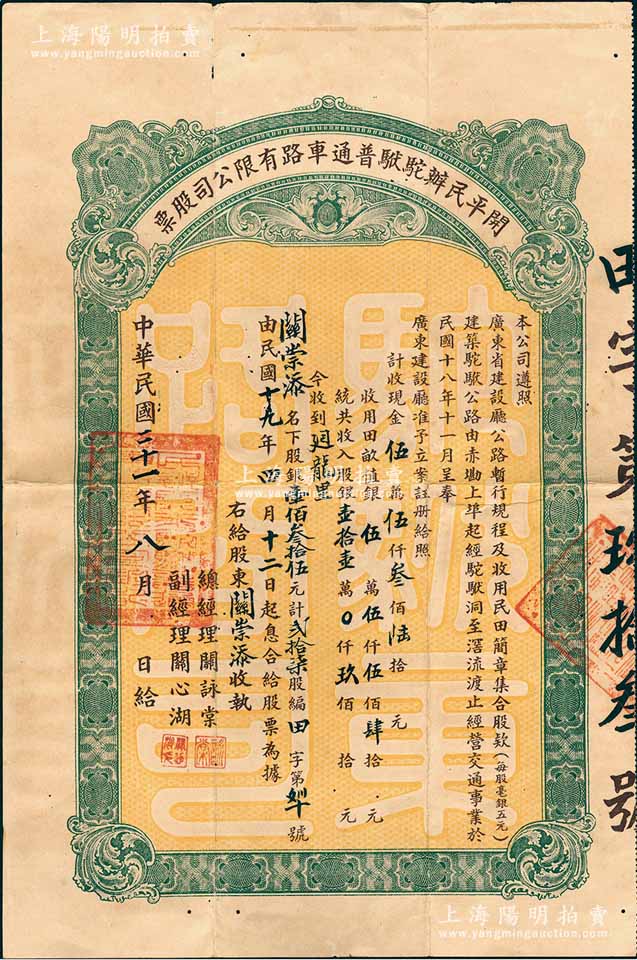 上海陽明拍賣
www.yangmingauction.com
上海陽明拍賣
www.yangmingauction.com
開平民辦駝駄普通車路有限公司股票
本公司遵照
廣東省建設廳公路暫行規程及收用民田簡章集合股欵（每股毫銀五元）
建築駝駄公路由赤墈上埠起經駝駄洞至滘流渡止經營交通事業於
民國十八年十一月呈奉
廣東建設廳准予立案註册給照
計收現金伍萬伍仟叁佰陆拾元
收用田畝值銀伍萬伍仟伍佰肆拾元
統共收入股銀壹拾壹萬〇仟玖佰拾元
今收到廻龍里
關崇添名下股銀壹佰叁拾伍元計弍拾柒股編田字第號
由民國十九年四月十二日起息合給股票為據
右給股東關崇添收執
總經理關詠棠
副經理關心湖
中華民國二十一年八月日給
田字第玖拾叁號
上海陽明拍賣
www.yangmingauction.com
上海陽明拍賣
www.yangmingauction.com